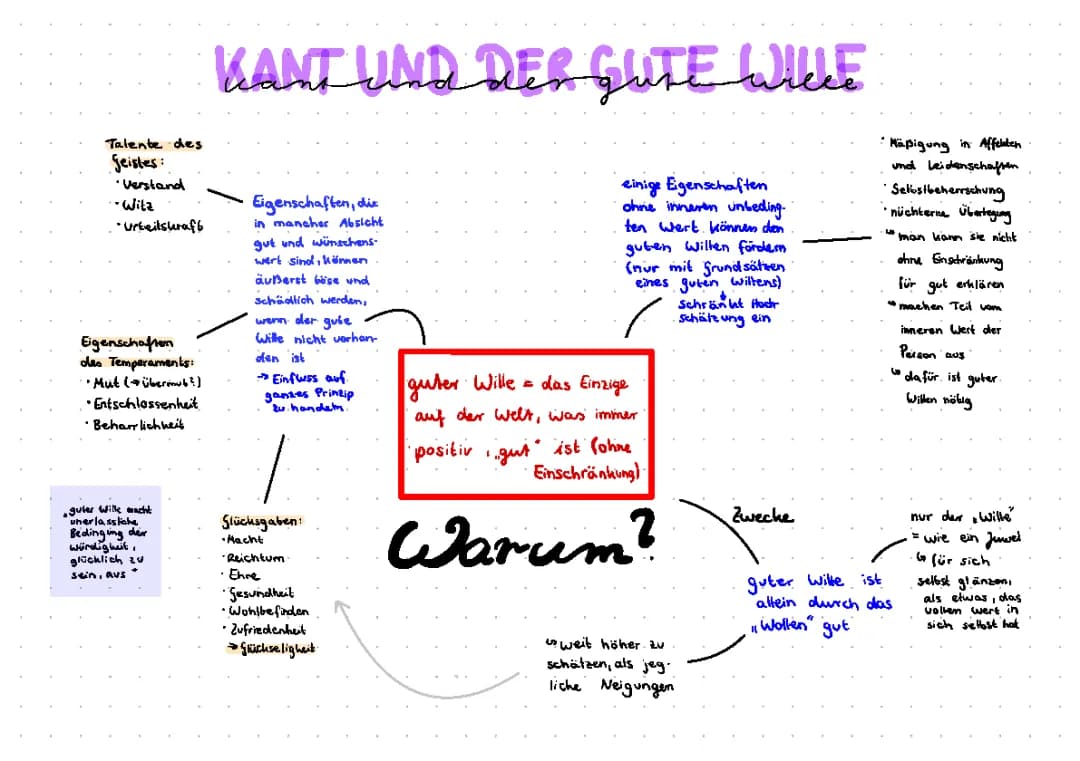 KANT UND DER GUTE WILLE
kant und der gute wille
Talente des
Geistes:
· Verstand
· Witz
· Urteilskraft
Eigenschaften, die
in mancher Absicht
gut und wünschens-
wert sind, können
äußerst böse und
schädlich werden,
wenn der gute
Wille nicht vorhan-
den ist
→ Einfluss auf
ganzes Prinzip
zu handeln
Eigenschaften
des Temperaments:
· Mut (→ Übermut?)
· Entschlossenheit
· Beharrlichkeit
„guter Wille macht
unerlassliche
Bedingung der
Würdigkeit,
glücklich zu
sein, aus"
Glücksgaben:
· Macht
· Reichtum
· Ehre
· Gesundheit
· Wohlbefinden
· Zufriedenheit
→ Glückseligkeit
guter Wille = das Einzige
auf der Welt, was immer
positiv, „gut" ist (ohne
Einschränkung)
Warum?
einige Eigenschaften
ohne inneren unbeding-
ten Wert können den
guten Willen fördern
(nur mit Grundsätzen
eines guten Willens)
↓
schränkt Hoch-
schätzung ein
· Mäßigung in Affekten
und Leidenschaften
· Selbstbeherrschung
· nüchterne Überlegung
↳ man kann sie nicht
ohne Einschränkung
für gut erklären
↳ machen Teil vom
inneren Wert der
Person aus
↳ dafür ist guter
Willen nötig
Zwecke
guter Wille ist
allein durch das
„Wollen" gut
nur der „Wille"
= wie ein Juwel
↳ für sich
selbst glänzen,
als etwas, das
vollen Wert in
sich selbst hat
↳ weit höher zu
schätzen, als jeg-
liche Neigungen